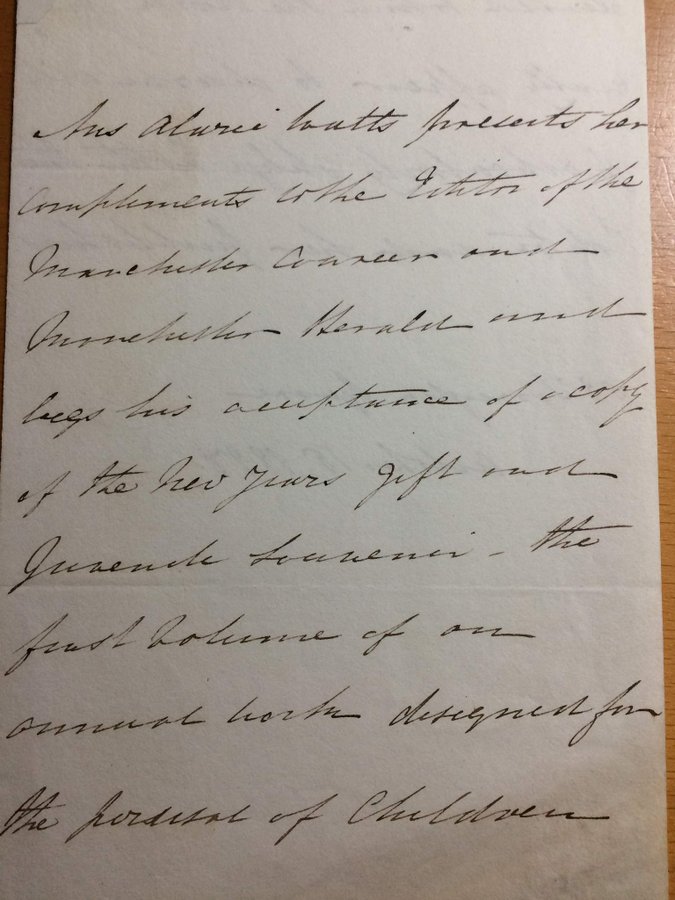 Mrs Alaric Watts presents her
compliments to the Editor of the
Manchester Courier and
Manchester Herald and
begs his acceptance of a copy
of the New Years Gift and
Juvenile Souvenir - the
first volume of an
annual work designed for
the perusal of Children